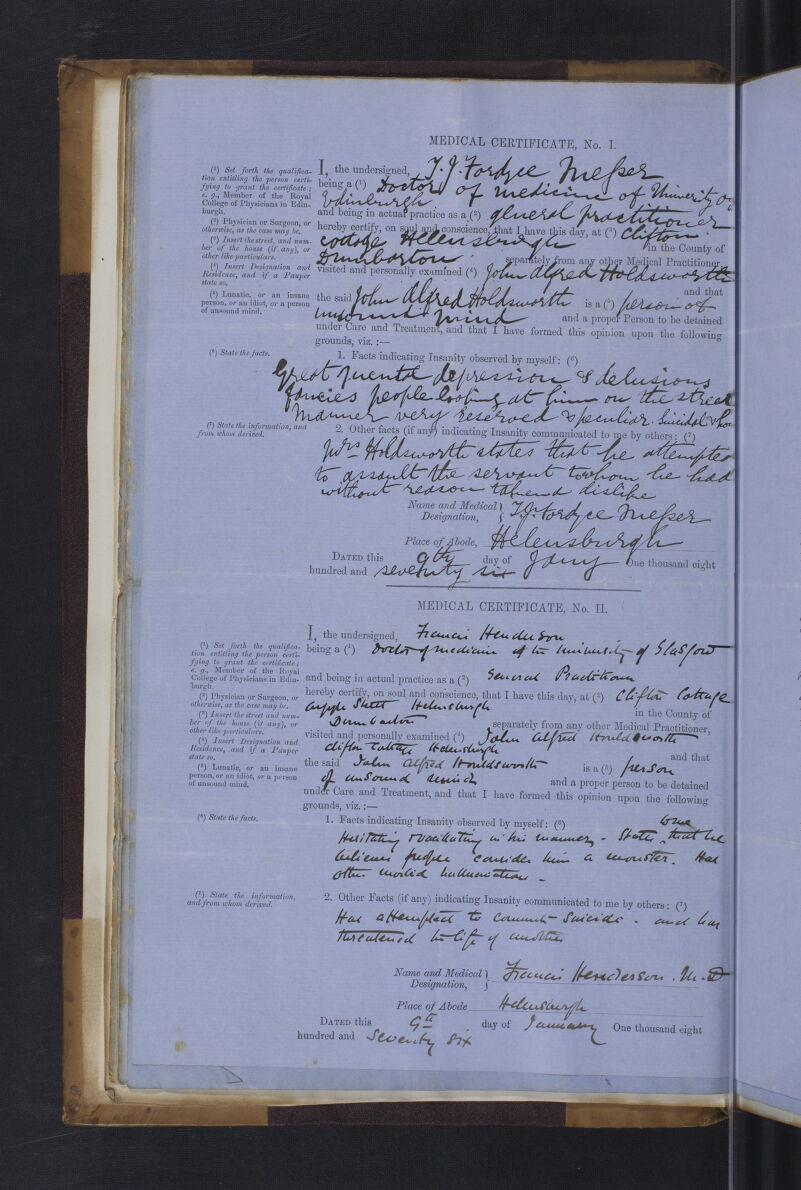 MEDICAL CERTIFICATE, No. I.
(¹) Set forth the qualifica-
tion entitling the person certi-
fying to grant the certificate;
e. g., Member of the Royal
College of Physicians in Edin-
burgh.
(²) Physician or Surgeon, or
otherwise, as the case may be.
(³) Insert the street, and num-
ber of the house (if any), or
other like particulars.
(⁴) Insert Designation and
Residence, and if a Pauper
state so.
(⁵) Lunatic, or an insane
person, or an idiot, or a person
of unsound mind.
I, the undersigned, T. J. Fordyce Messer
being a (¹) Doctor of medicine of University of
Edinburgh
and being in actual practice as a (²) general practitioner
hereby certify, on soul and conscience, that I have this day, at (³) Clifton
cottage Helensburgh in the County of
Dumbarton separately from any other Medical Practitioner,
visited and personally examined (⁴) John Alfred Holdsworth
and that
the said John Alfred Holdsworth is a (⁵) person of
unsound mind and a proper Person to be detained
under Care and Treatment, and that I have formed this opinion upon the following
grounds, viz. :—
(⁶) State the facts.
1. Facts indicating Insanity observed by myself: (⁶)
Great mental depression & delusions
fancies people looking at him on the street
Manner very reserved & peculiar. Suicidal
(⁷) State the information, and
from whom derived.
2. Other facts (if any) indicating Insanity communicated to me by others: (⁷)
Mrs Holdsworth states that he attempted
to assault the servant to whom he had
without reason taken a dislike
Name and Medical Designation, T. J. Fordyce Messer
Place of Abode, Helensburgh
DATED this 9th day of Jany One thousand eight
hundred and seventy six
MEDICAL CERTIFICATE, No. II.
(¹) Set forth the qualifica-
tion entitling the person certi-
fying to grant the certificate;
e. g., Member of the Royal
College of Physicians in Edin-
burgh.
(²) Physician or Surgeon, or
otherwise, as the case may be.
(³) Insert the street and num-
ber of the house (if any), or
other like particulars.
(⁴) Insert Designation and
Residence, and if a Pauper
state so.
(⁵) Lunatic, or an insane
person, or an idiot, or a person
of unsound mind.
I, the undersigned, Francis Henderson
being a (¹) Doctor of medicine of the University of Glasgow
and being in actual practice as a (²) General Practitioner
hereby certify, on soul and conscience, that I have this day, at (³) Clifton Cottage
Argyle Street Helensburgh in the County of
Dumbarton separately from any other Medical Practitioner,
visited and personally examined (⁴) John Alfred Houldsworth
Clifton Cottage Helensburgh and that
the said John Alfred Houldsworth is a (⁵) person
of unsound mind and a proper person to be detained
under Care and Treatment, and that I have formed this opinion upon the following
grounds, viz. :—
(⁶) State the facts.
1. Facts indicating Insanity observed by myself: (⁶)
Hesitating & vacillating in his manner - States that he
believes people consider him a monster. Has
other morbid hallucinations -
(⁷) State the information,
and from whom derived.
2. Other Facts (if any) indicating Insanity communicated to me by others: (⁷)
Has attempted to commit Suicide - and has
threatened the life of another
Name and Medical Designation, Francis Henderson. M.D
Place of Abode Helensburgh
DATED this 9th day of January One thousand eight
hundred and Seventy Six